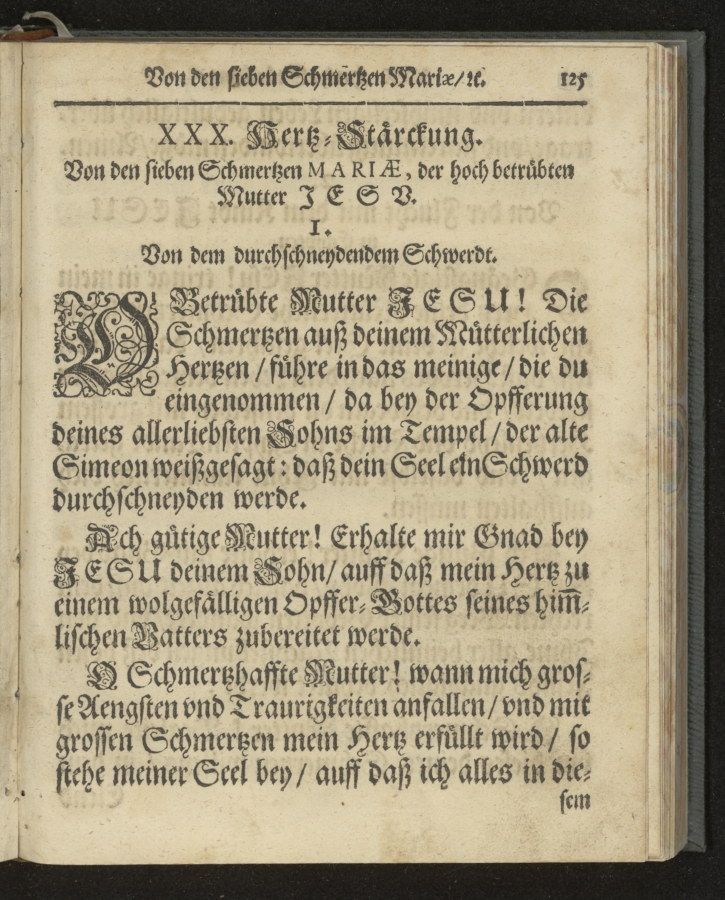 Von den sieben Schmertzen Mariæ/ ꝛc. 125
XXX. Hertz-Stärckung.
Von den sieben Schmertzen MARIÆ, der hoch betrübten
Mutter JESV.
1.
Von dem durchschneydendem Schwerdt.
O Betrübte Mutter JESU! Die
Schmertzen auß deinem Mütterlichen
Hertzen / führe in das meinige / die du
eingenommen / da bey der Opfferung
deines allerliebsten Sohns im Tempel / der alte
Simeon weißgesagt: daß dein Seel ein Schwerd
durchschneyden werde.
Ach gütige Mutter! Erhalte mir Gnad bey
JESU deinem Sohn/ auff daß mein Hertz zu
einem wolgefälligen Opffer-Gottes seines him̄-
lischen Vatters zubereitet werde.
O Schmertzhaffte Mutter! wann mich gros-
se Aengsten vnd Traurigkeiten anfallen/ vnd mit
grossen Schmertzen mein Hertz erfüllt wird / so
stehe meiner Seel bey / auff daß ich alles in die-
sem